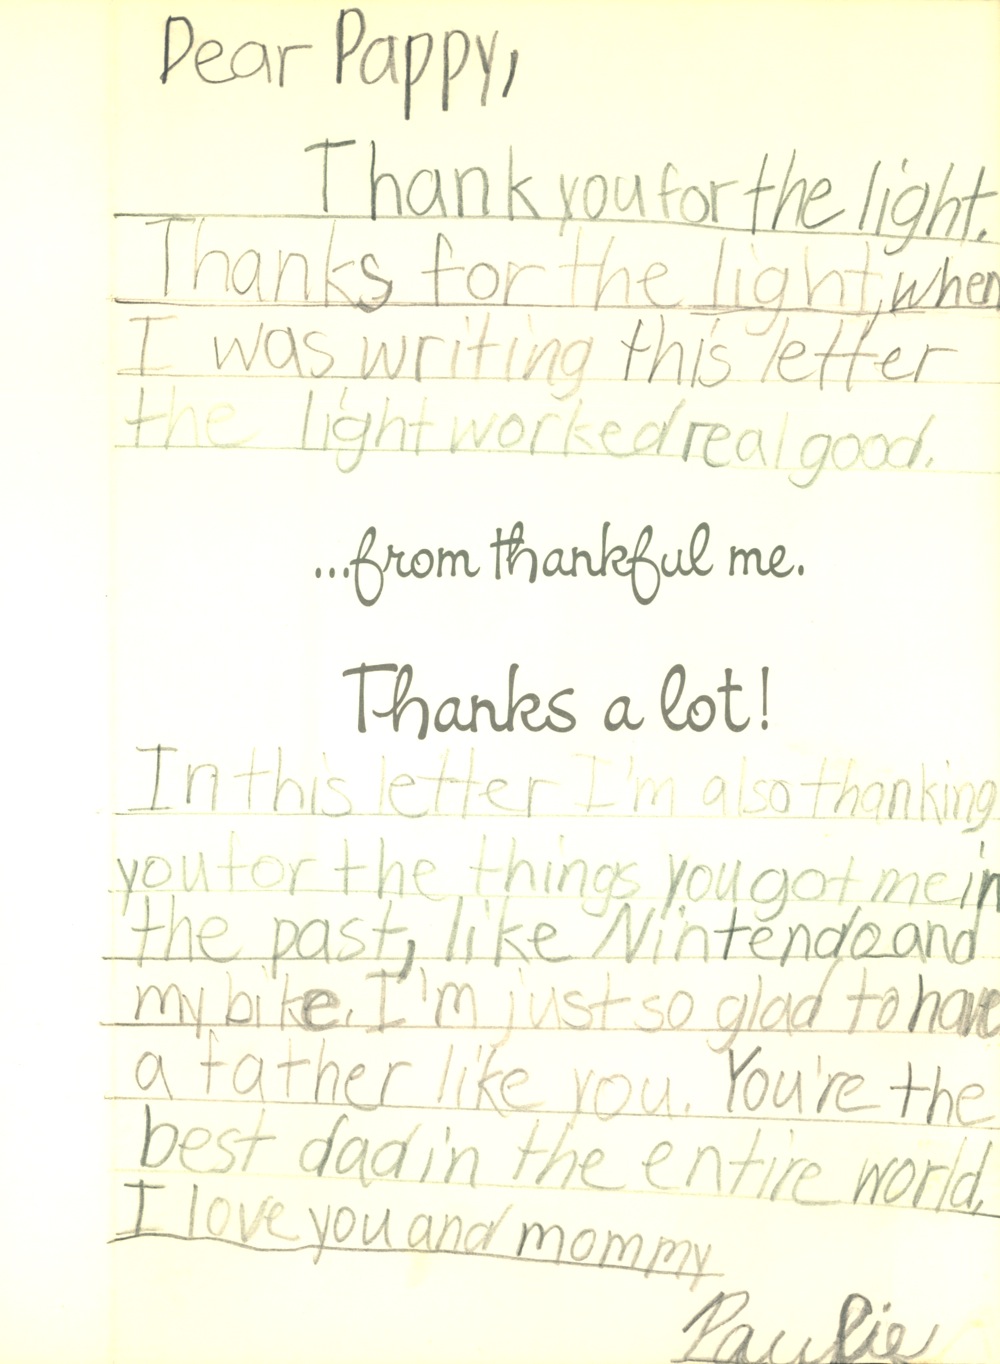 Dear Pappy,
Thank you for the light.
Thanks for the light, when
I was writing this letter
the light worked real good.
...from thankful me.
Thanks a lot!
In this letter I'm also thanking
you for the things you got me in
the past, like Nintendo and
my bike. I'm just so glad to have
a father like you. You're the
best dad in the entire world.
I love you and mommy
Paulie